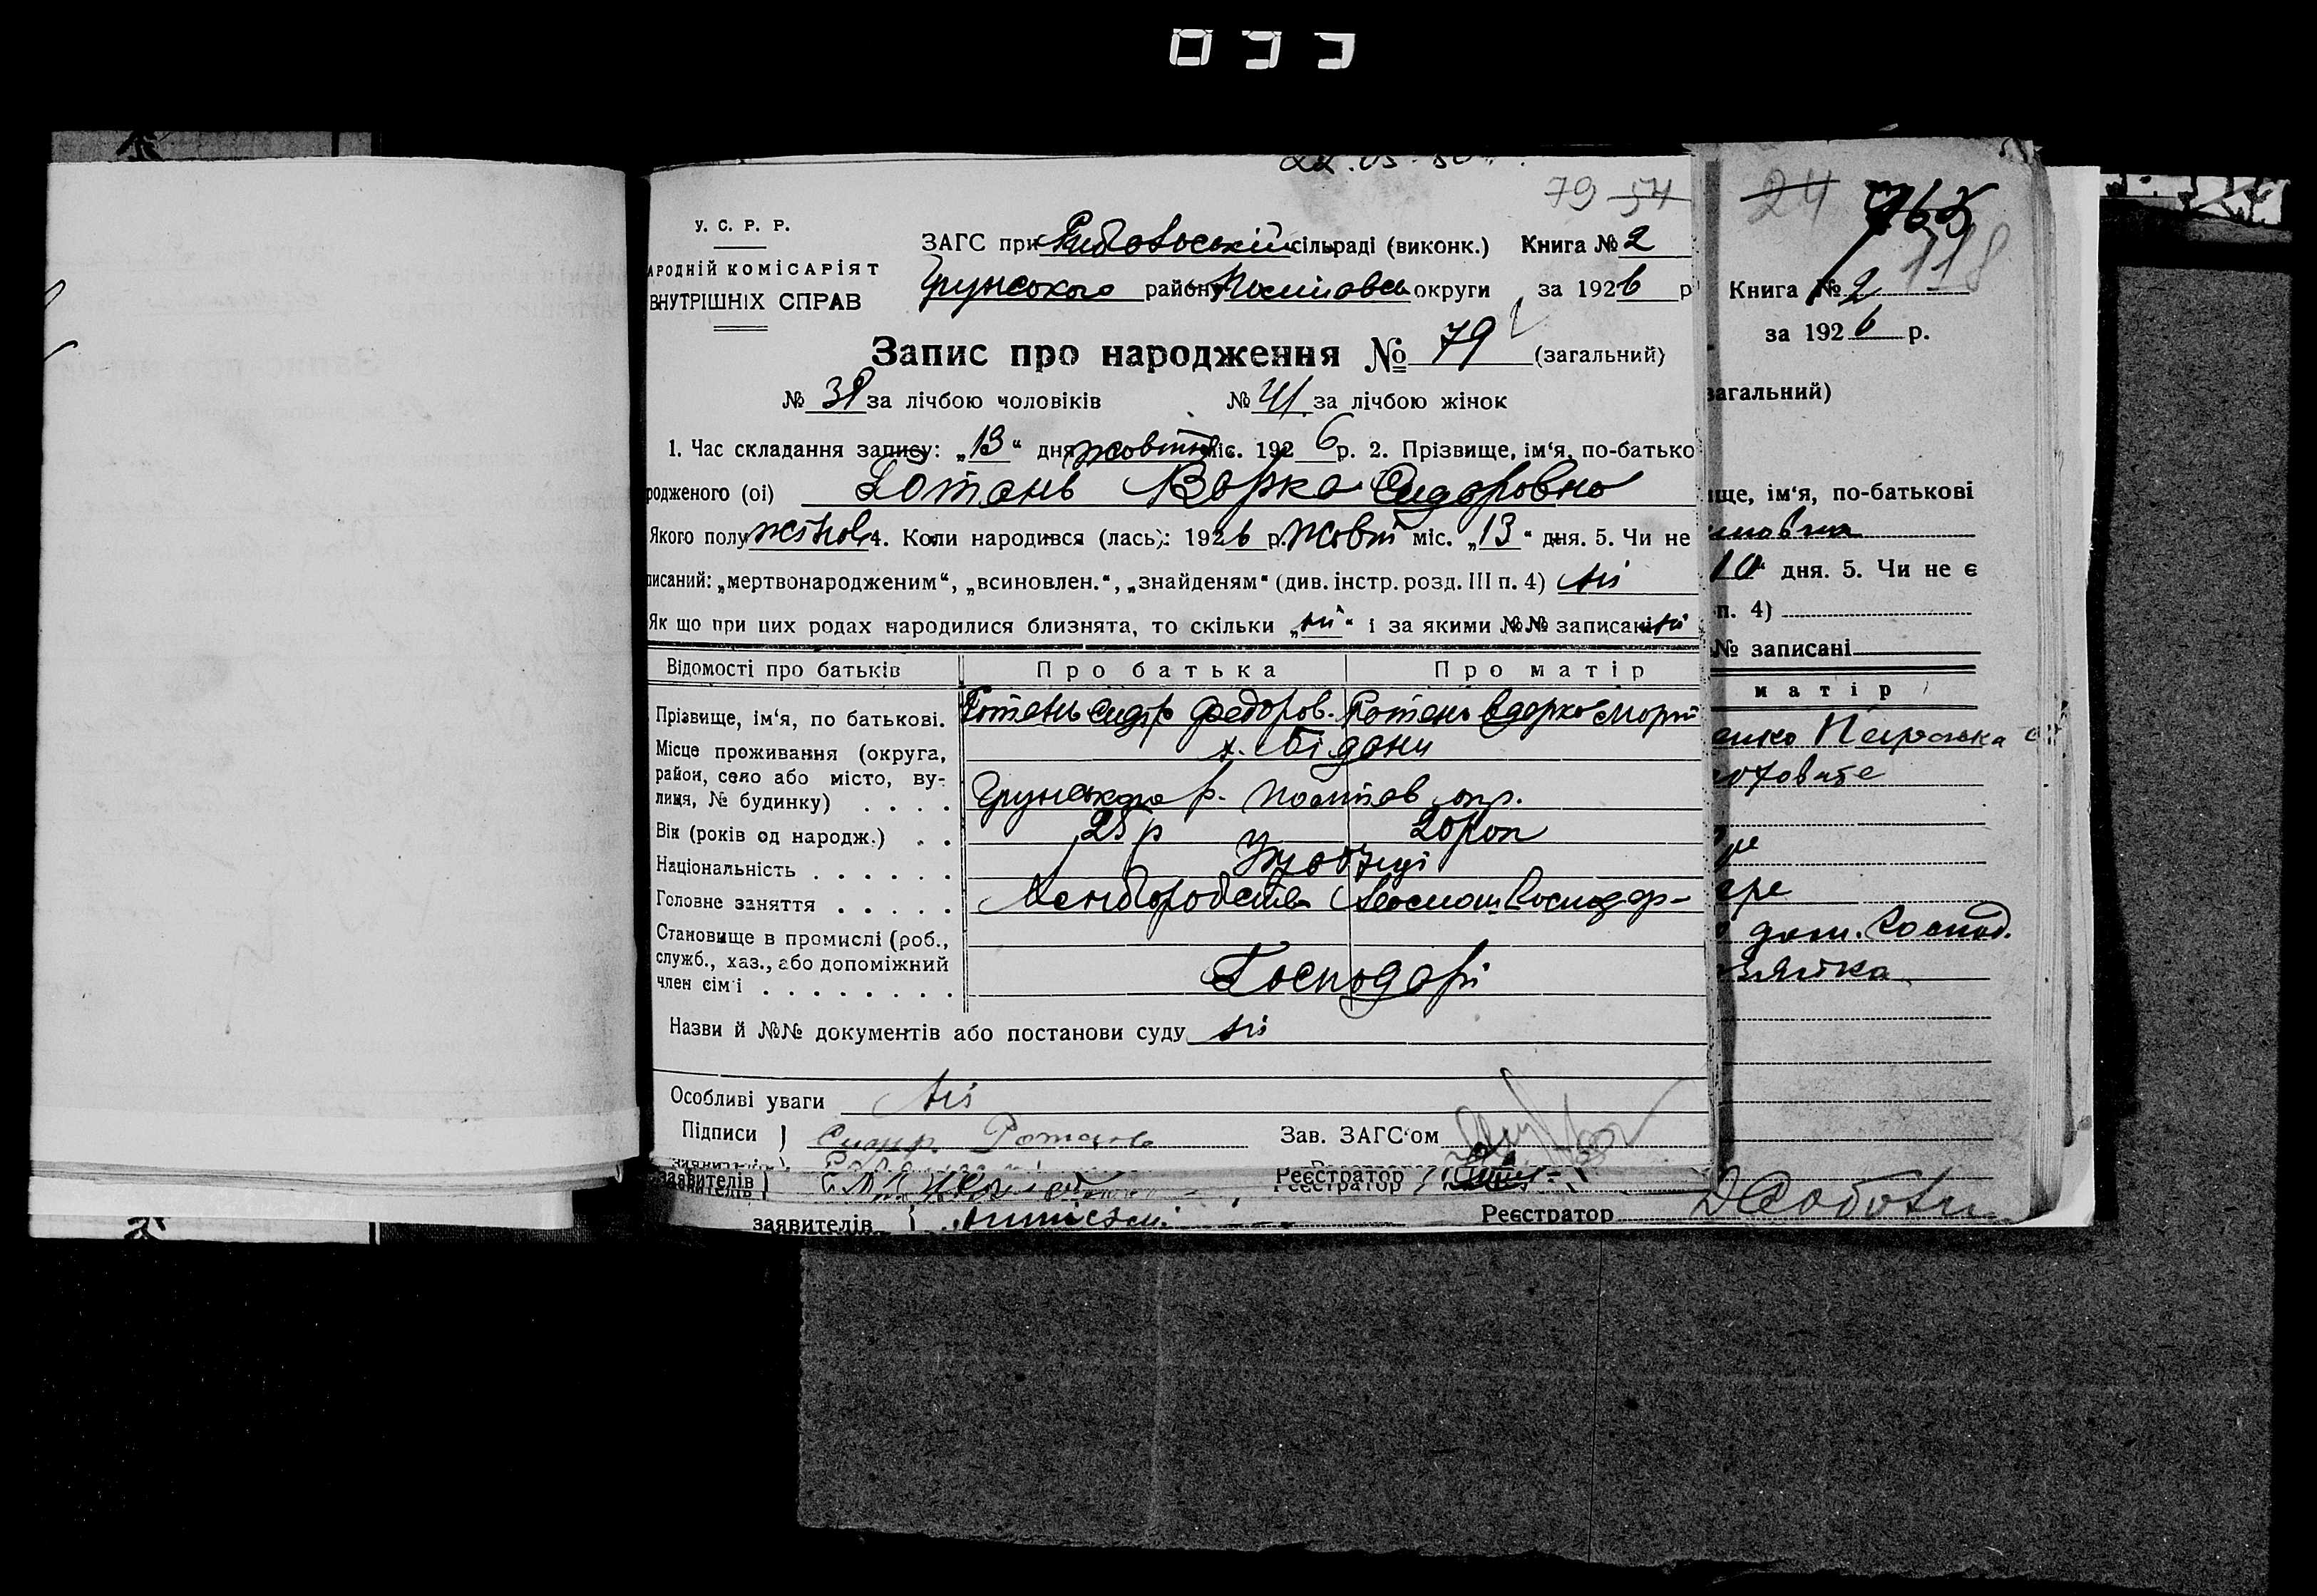 22.03.50
79 54
У. С. Р. Р.
АРОДНІЙ КОМІСАРІЯТ
ВНУТРІШНІХ СПРАВ
ЗАГС при сільраді (виконк.) Книга № 2
Грунського району Полтавськ округи за 1926 р
Запис про народження № 79 (загальний)
№ 38 за лічбою чоловіків № 41 за лічбою жінок
1. Час складання запису: „13“ дня жовтня міс. 1926 р. 2. Прізвище, ім‘я, по-батько
родженого (ої) Ротань Варка Сидоровна
Якого полу жіноч 4. Коли народився (лась): 1926 р. Жовт міс. „13“ дня. 5. Чи не
писаний: „мертвонародженим“, „всиновлен.“, „знайденям“ (див. інстр. розд. III п. 4) ні
Як що при цих родах народилися близнята, то скільки „ні“ і за якими №№ записані ні
Відомості про батьків Про батька Про матір
Прізвище, ім‘я, по батькові. Ротань Сидір Федоров. Ротань Одарка
Місце проживання (округа, х. Бідани
район, село або місто, ву-
лиця, № будинку) . . . . Грунського р. Полтав окр.
Вік (років од народж.) . . 25 р 20 рок
Національність . . . . . . Українці
Головне заняття . . . . . Хліборобства господар-
Становище в промислі (роб.,
служб., хаз., або допоміжний
член сім‘ї . . . . . . . . Господарі
Назви й №№ документів або постанови суду ні
Особливі уваги ні
Підписи } Сидир Ротань Зав. ЗАГС‘ом
заявителів } Реєстратор
заявителів { Реєстратор
24 118
Книга № 2
за 1926 р.
загальний)
ище, ім‘я, по-батькові
10“ дня. 5. Чи не є
п. 4)
№ записані
матір
енко Параска
дом. господ.